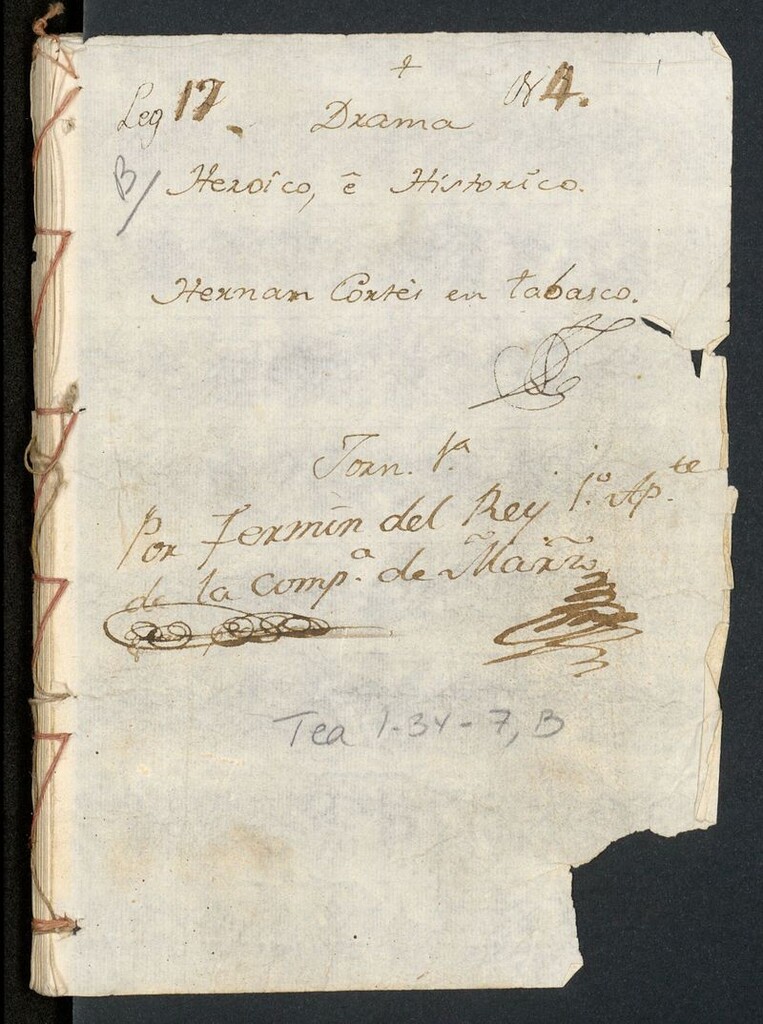 +
Leg 17. Drama N 4.
B/ Heroico, ê Historico.
Hernan Cortès en tabasco.
Jorn. 1ª
Por Fermin del Rey 1.º Ap.te
de la comp.ª de
Tea 1-34-7, B